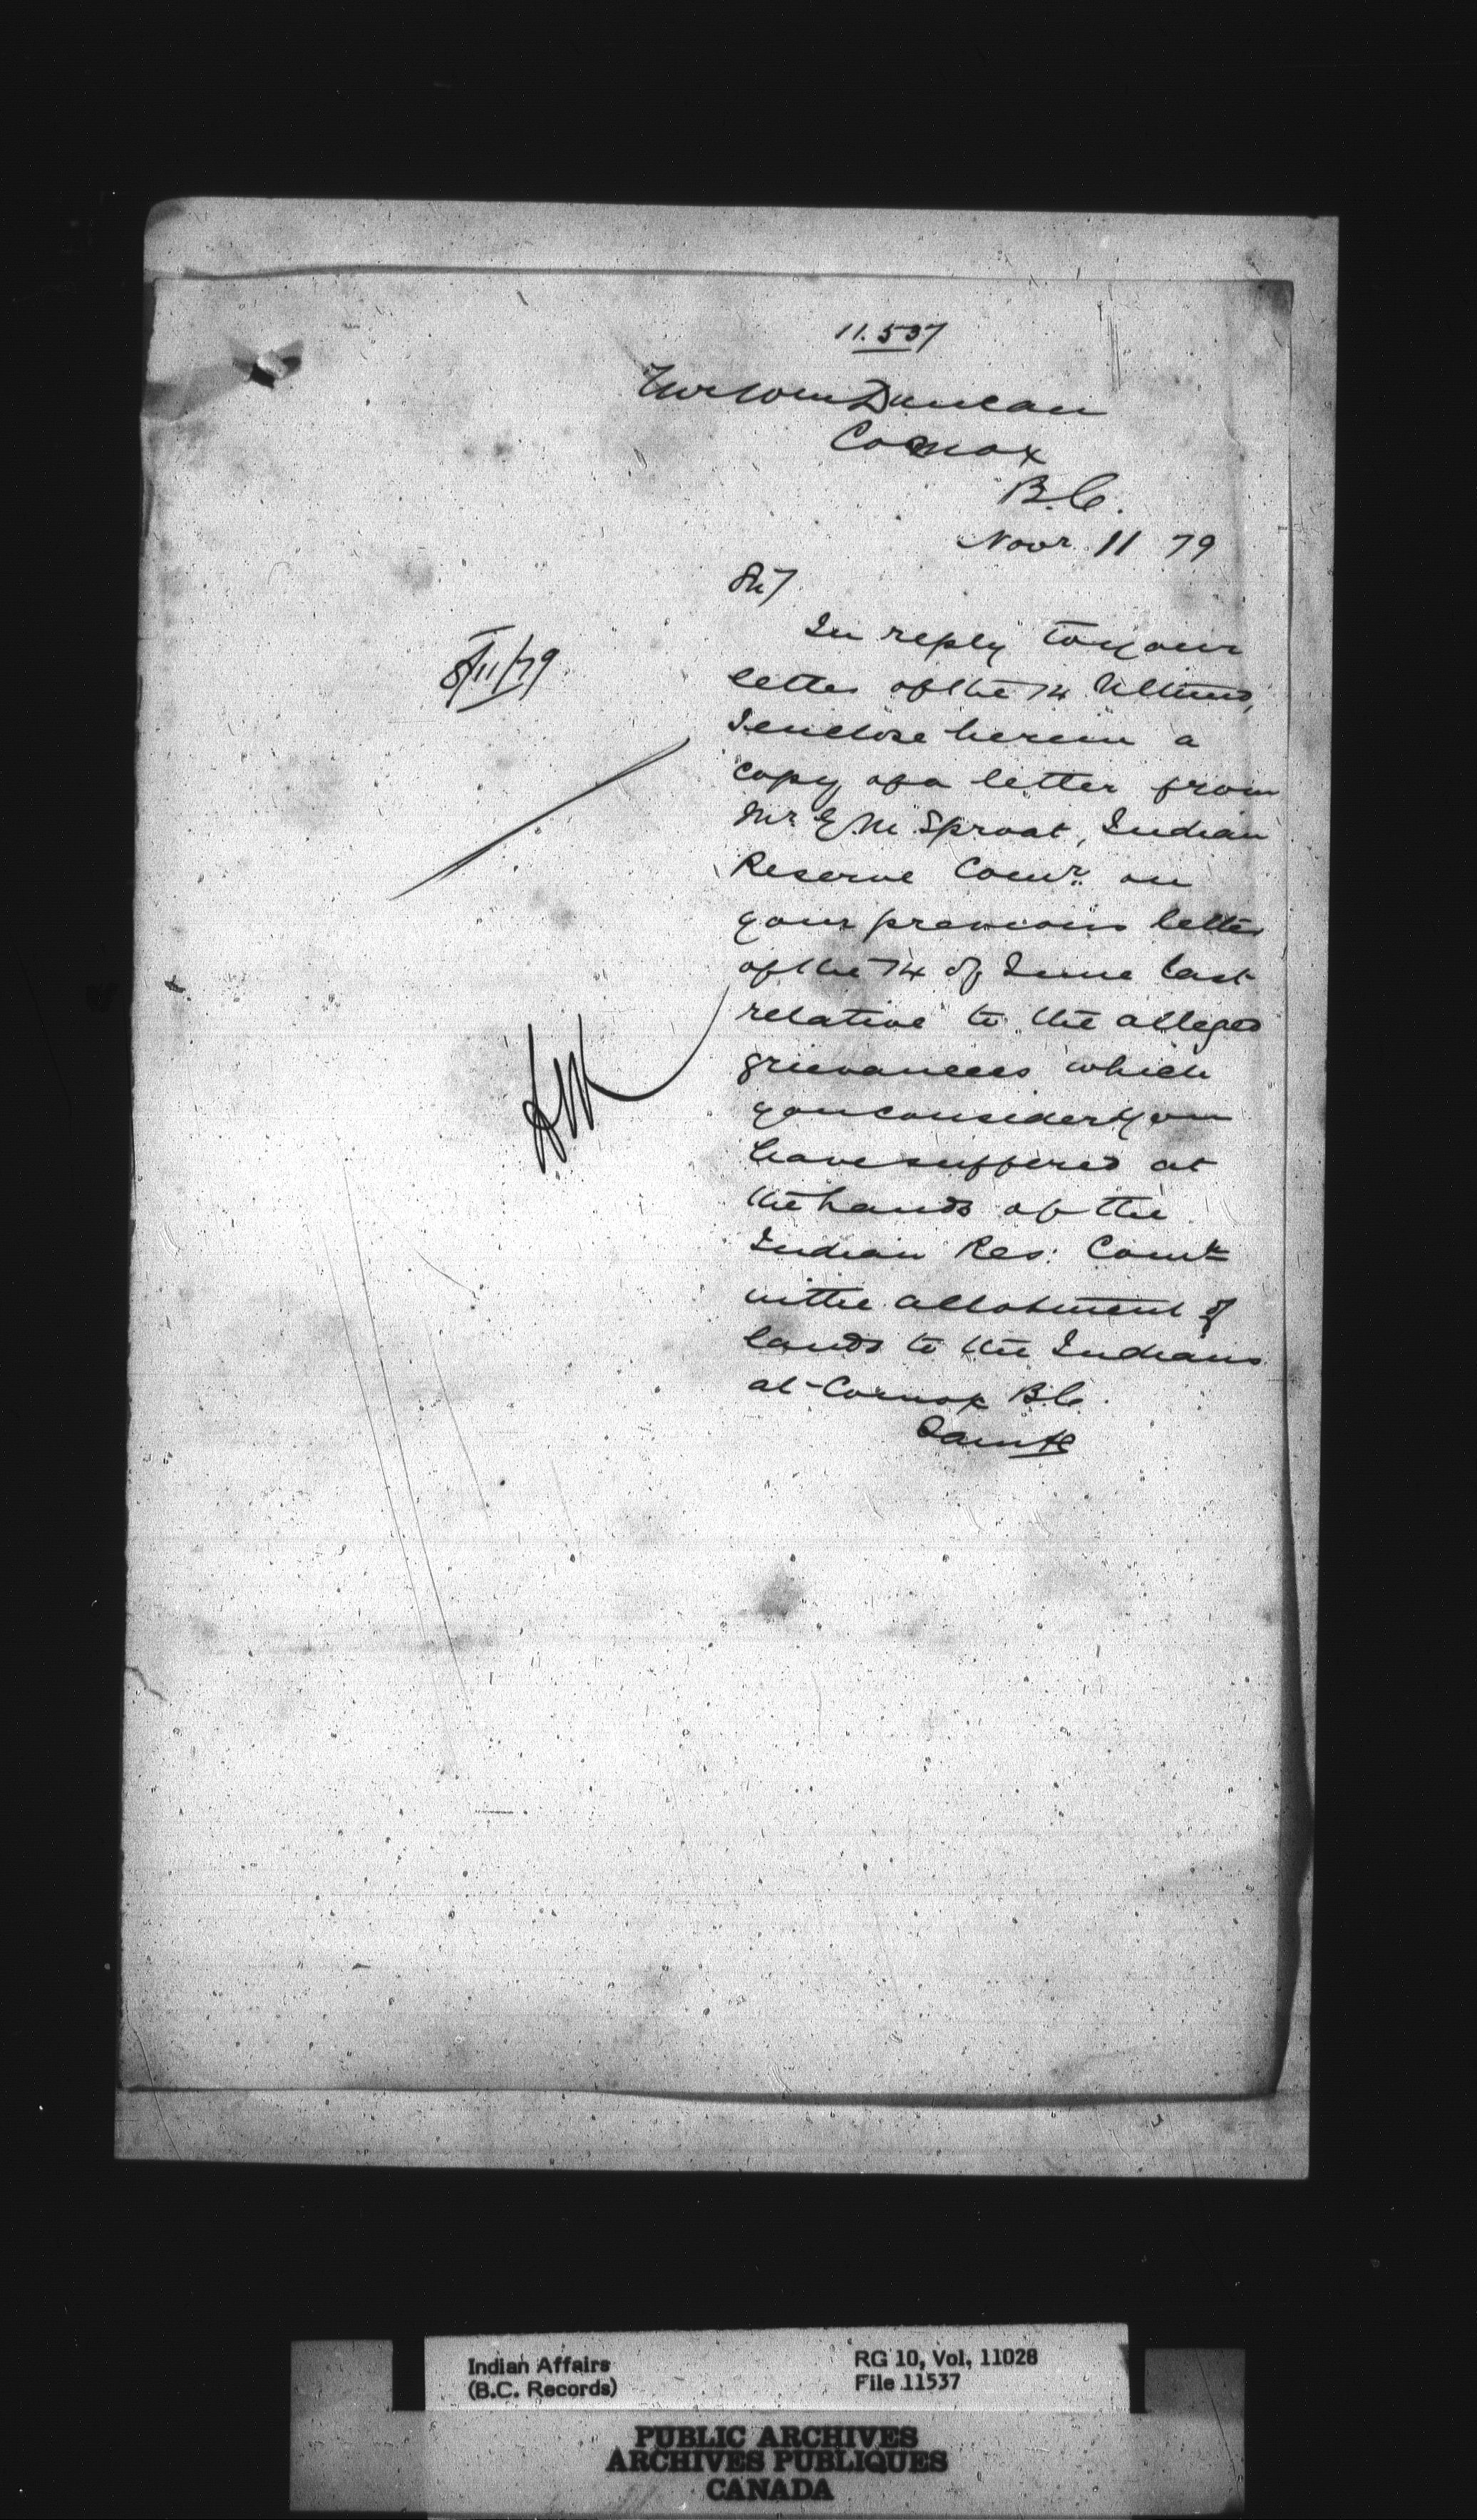 11.537
Mr Wm Duncan
Comox
B.C.
Novr 11 79
Sir
8/11/79
In reply to your
letter of the 74 Ultimo,
I enclose herein a
copy of a letter from
Mr G M Sproat, Indian
Reserve Comr. on
your previous letter
of the 74 of June last
relative to the alleged
grievances which
you consider you
have suffered at
the hands of the
Indian Res: Comr
in the allotment of
lands to the Indians
at Comox B.C.
Indian Affairs
(B.C. Records)
RG 10, Vol, 11028
File 11537
PUBLIC ARCHIVES
ARCHIVES PUBLIQUES
CANADA